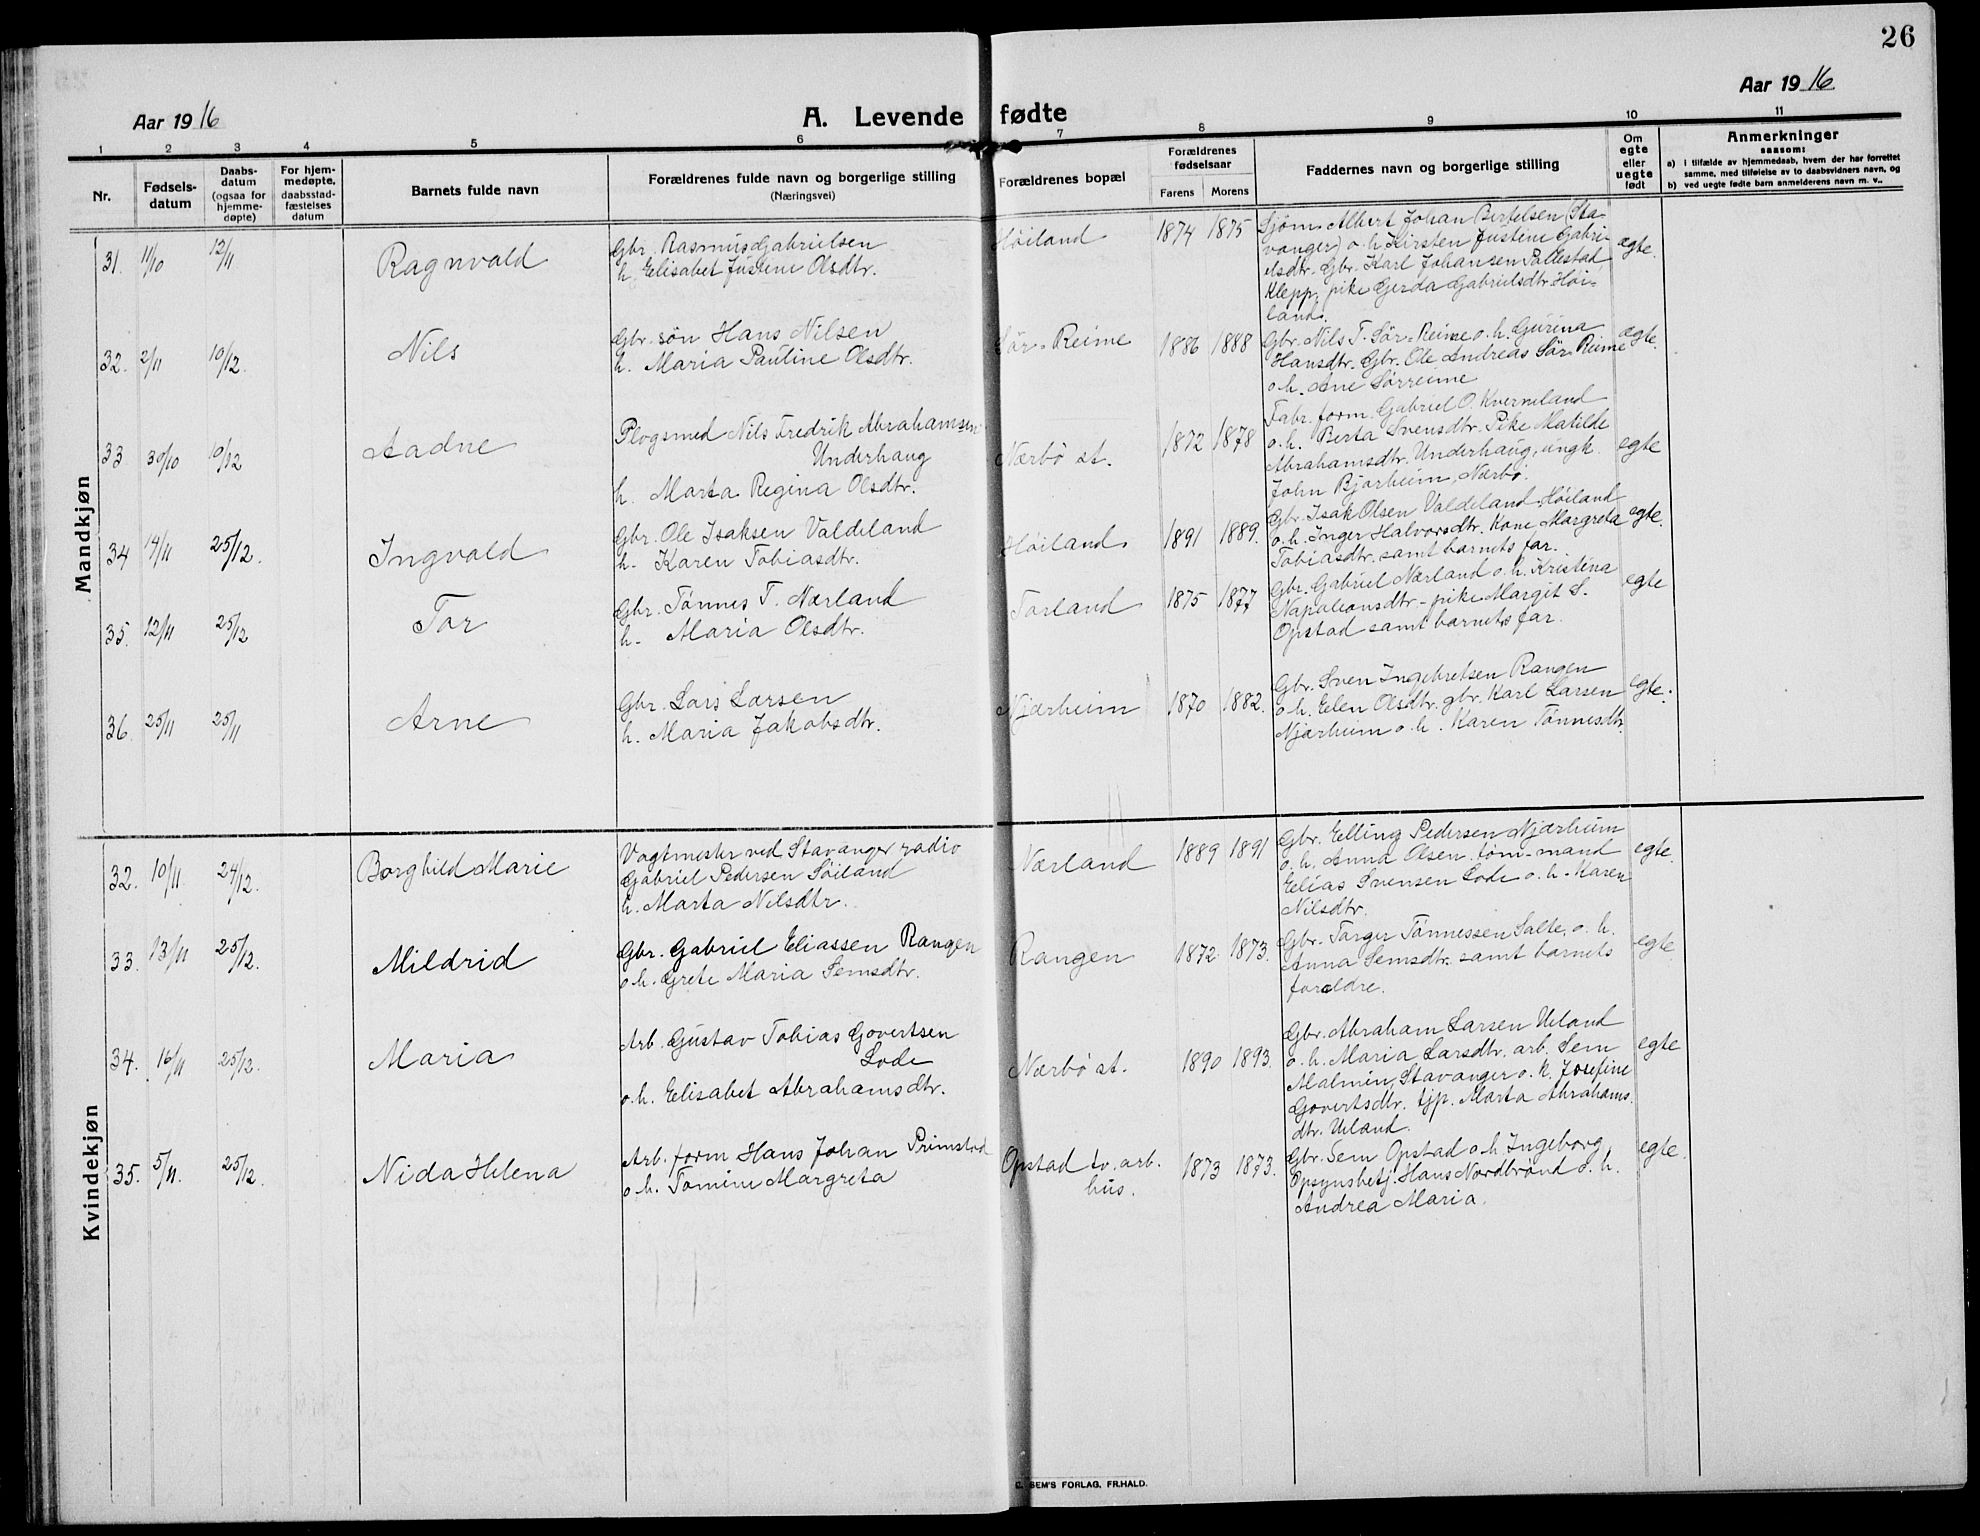 26
Aar 1916
Aar 1916
A. Levende fødte
1 2 3 4 5 6 7 8 9 10 11
Nr.
Fødsels-
datum
Daabs-
datum
(ogsaa for
hjemme-
døpte)
For hjem-
medøpte,
daabsstad-
fæstelses
datum
Barnets fulde navn
Forældrenes fulde navn og borgerlige stilling
(Næringsvei)
Forældrenes bopæl
Forældrenes
fødselsaar
Farens Morens
Faddernes navn og borgerlige stilling
Om
egte
eller
uegte
født
Anmerkninger
saasom:
a) i tilfælde av hjemmedaab, hvem der har forrettet
samme, med tilføielse av to daabsvidners navn, og
b) ved uegte fødte barn anmelderens navn m. v..
Mandkjøn
31. 11/10 12/11 Ragnvald
Gbr. Rasmus Gabrielsen
h. Elisabet Justine Olsdtr.
Høiland 1874 1875
Sjøm. Albert Johan Bertelsen (Sta-
vanger) o. h. Kirsten Justine Gabri-
elsdtr. Gbr. Karl Johansen Pallestad,
Klepp, pike Gerda Gabrielsdtr. Høi-
land.
egte.
32. 2/11 10/12. Nils
Gbr. søn Hans Nilsen
h. Maria Pauline Olsdtr.
Sør-Reime 1886 1888
Gbr. Nils T. Sør-Reime o. h. Gurina
Hansdtr. Gbr. Ole Andreas Sør-Reime
o. h. Ane Sørreime
egte.
33 30/10 10/12 Aadne
Plogsmed Nils Fredrik Abrahamsen
Underhaug
h. Marta Regina Olsdtr.
Nærbø st. 1872 1878
Fabr. form. Gabriel O. Kverneland
o. h. Berta Svensdtr. Pike Matilde
Abrahamsdtr. Underhaug, ungk.
John Bjorheim, Nærbø.
egte
34 14/11 25/12. Ingvald
Gbr. Ole Isaksen Valdeland
h. Karen Tobiasdtr.
Høiland. 1891 1889.
Gbr. Isak Olsen Valdeland, Høiland
o. h. Inger Halvorsdtr. Kone Margreta
Tobiasdtr. samt barnets far.
egte.
35. 12/11 25/12 Tor
Gbr. Tønnes T. Nærland
h. Maria Olsdtr.
Torland 1875 1877
Gbr. Gabriel Nærland o. h. Kristina
Napoleonsdtr. - pike Margit S.
Opstad samt barnets far.
egte
36. 25/11 25/11 Arne
Gbr. Lars Larsen
h. Maria Jakobsdtr.
Njærheim 1870 1882.
Gbr. Sven Ingebretsen Rangen
o. h. Elen Olsdtr. gbr. Karl Larsen
Njærheim o. h. Karen Tønnesdtr.
egte.
Kvindekjøn
32. 10/11. 24/12. Borghild Marie
Vagtmester ved Stavanger radio
Gabriel Pedersen Søiland
h. Marta Nilsdtr.
Nærland 1889 1891
Gbr. Elling Pedersen Njærheim
o. h. Anna Olsen. tøm-mand
Elias Svensen Lode o. h. Karen
Nilsdtr.
egte.
33. 13/11 25/12. Mildrid
Gbr. Gabriel Eliassen Rangen
o. h. Grete Maria Semsdtr.
Rangen 1872 1873.
Gbr. Torger Tønnessen Salte, o. h.
Anna Semsdtr. samt barnets
forældre.
egte.
34. 16/11 25/12. Maria
Arb. Gustav Tobias Govertsen
Lode
o. h. Elisabet Abrahamsdtr.
Nærbø st. 1890 1893.
Gbr. Abraham Larsen Ueland
o. h. Maria Larsdtr. arb. Sem
Malmin, Stavanger o. h. Josefine
Govertsdtr. tjp. Marta Abrahams.
dtr. Ueland.
egte
35. 5/11. 25/12. Nida Helena
Arb. form Hans Johan Primstad
o. h. Tomine Margreta
Opstad tv. arb.
hus.
1873 1873.
Gbr. Sem Opstad o. h. Ingeborg,
Opsynsbetj. Hans Nordbrønd o. h.
Andrea Maria.
egte.
SEM'S FORLAG, FR.HALD.